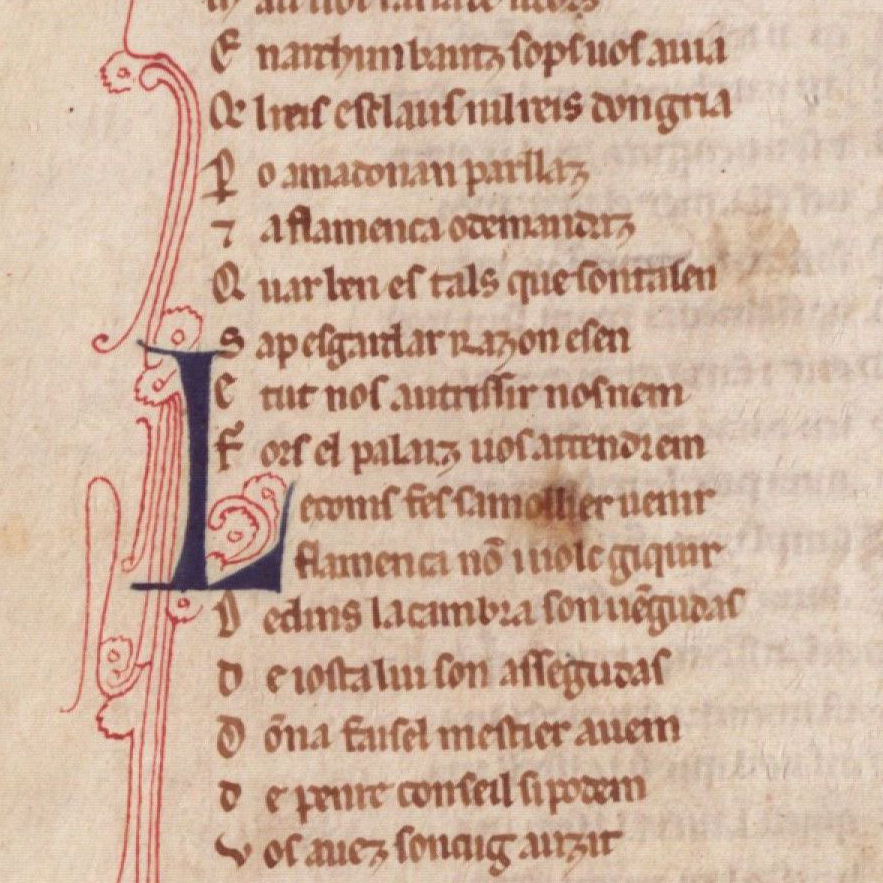 E narchinbautz sops uos auia
Q lreis esclaus nil reis dongria
P o amadonan parllaz
⁊ a flamenca o demandatz
Q uar ben es tals que son talen
S ap esgardar razon e sen
E tut nos autrissir nosnem
F ors el palaiz uos attendrem
L ecoms fes samollier uenir
flamenca nō i uolc giquir
D edins lacambra son uēgudas
d e iosta lui son assegudas
D ōna faisel mestier auem
d e penre conseil si podem
v os auez son cug auzit